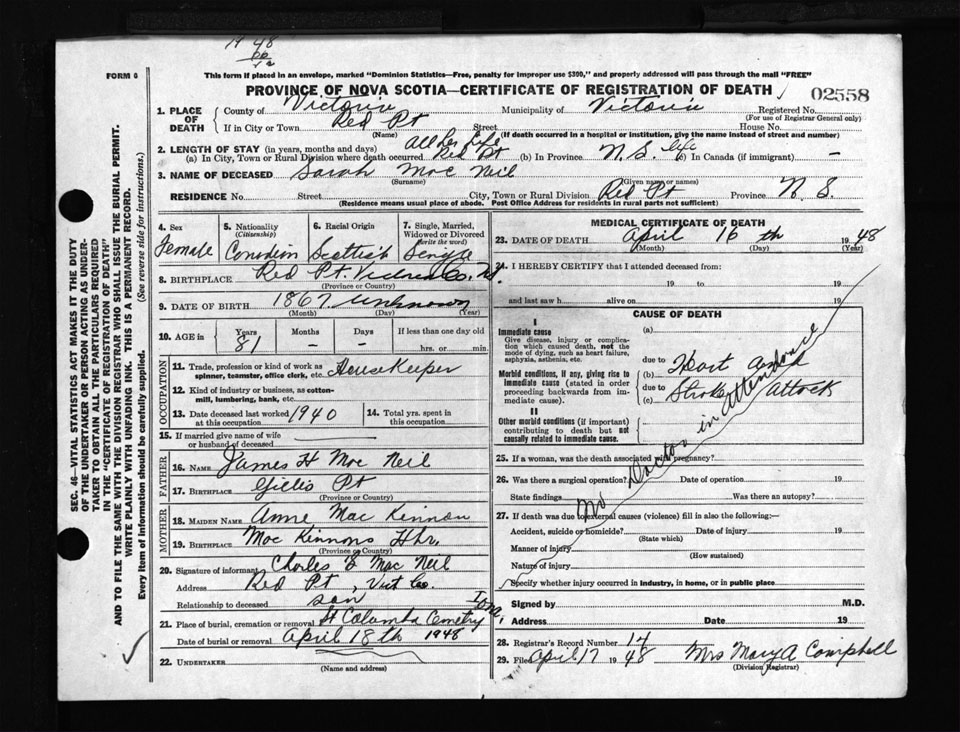 19 48
FORM 6
This form if placed in an envelope, marked "Dominion Statistics—Free, penalty for improper use $300," and properly addressed will pass through the mail "FREE"
PROVINCE OF NOVA SCOTIA—CERTIFICATE OF REGISTRATION OF DEATH
02558
SEC. 46—VITAL STATISTICS ACT MAKES IT THE DUTY OF THE UNDERTAKER OR PERSON ACTING AS UNDERTAKER TO OBTAIN ALL THE PARTICULARS REQUIRED IN THE "CERTIFICATE OF REGISTRATION OF DEATH"
AND TO FILE THE SAME WITH THE DIVISION REGISTRAR WHO SHALL ISSUE THE BURIAL PERMIT.
WRITE PLAINLY WITH UNFADING INK. THIS IS A PERMANENT RECORD.
Every item of information should be carefully supplied. (See reverse side for instructions.)
1. PLACE OF DEATH County of Victoria Municipality of Victoria Registered No.
(For use of Registrar General only)
If in City or Town Red Pt Street House No.
(Name) (If death occurred in a hospital or institution, give the name instead of street and number)
2. LENGTH OF STAY (in years, months and days) All Les Life
(a) In City, Town or Rural Division where death occurred Red Pt (b) In Province N.S. life (c) In Canada (if immigrant) —
3. NAME OF DECEASED Sarah Mac Neil
(Surname) (Given name or names)
RESIDENCE No. Street City, Town or Rural Division Red Pt Province N.S.
(Residence means usual place of abode. Post Office Address for residents in rural parts not sufficient)
4. Sex Female
5. Nationality (Citizenship) Canadian
6. Racial Origin Scottish
7. Single, Married, Widowed or Divorced (write the word) Single
8. BIRTHPLACE Red Pt. Victoria Co. N.S.
(Province or Country)
9. DATE OF BIRTH 1867. Unknown
(Month) (Day) (Year)
10. AGE in Years 81 Months – Days – If less than one day old hrs. or min.
OCCUPATION
11. Trade, profession or kind of work as spinner, teamster, office clerk, etc. HouseKeeper
12. Kind of industry or business, as cotton-mill, lumbering, bank, etc.
13. Date deceased last worked at this occupation 1940
14. Total yrs. spent in this occupation
15. If married give name of wife or husband of deceased
FATHER
16. NAME James H Mac Neil
17. BIRTHPLACE Gillis Pt
(Province or Country)
MOTHER
18. MAIDEN NAME Anne Mac Kinnon
19. BIRTHPLACE Mac Kinnons Hbr.
(Province or Country)
20. Signature of informant Charles S Mac Neil
Address Red Pt, Vict Co.
Relationship to deceased son
21. Place of burial, cremation or removal St Columba Cemetry Iona
Date of burial or removal April 18th 1948
22. UNDERTAKER
(Name and address)
MEDICAL CERTIFICATE OF DEATH
23. DATE OF DEATH April 16th 1948
(Month) (Day) (Year)
24. I HEREBY CERTIFY that I attended deceased from:
19 to 19
and last saw h alive on 19
CAUSE OF DEATH
I
Immediate cause
Give disease, injury or complication which caused death, not the mode of dying, such as heart failure, asphyxia, asthenia, etc.
Morbid conditions, if any, giving rise to immediate cause (stated in order proceeding backwards from immediate cause).
II
Other morbid conditions (if important) contributing to death but not causally related to immediate cause.
(a)
due to Heart and
(b)
due to Stroke Attack
(c)
No Doctor in Attendance
25. If a woman, was the death associated with pregnancy?
26. Was there a surgical operation? Date of operation 19
State findings Was there an autopsy?
27. If death was due to external causes (violence) fill in also the following:—
Accident, suicide or homicide? Date of injury 19
(State which)
Manner of injury
(How sustained)
Nature of injury
Specify whether injury occurred in industry, in home, or in public place
Signed by M.D.
Address Date 19
28. Registrar's Record Number 14
29. Filed April 17 1948 Mrs Mary A Campbell
(Division Registrar)